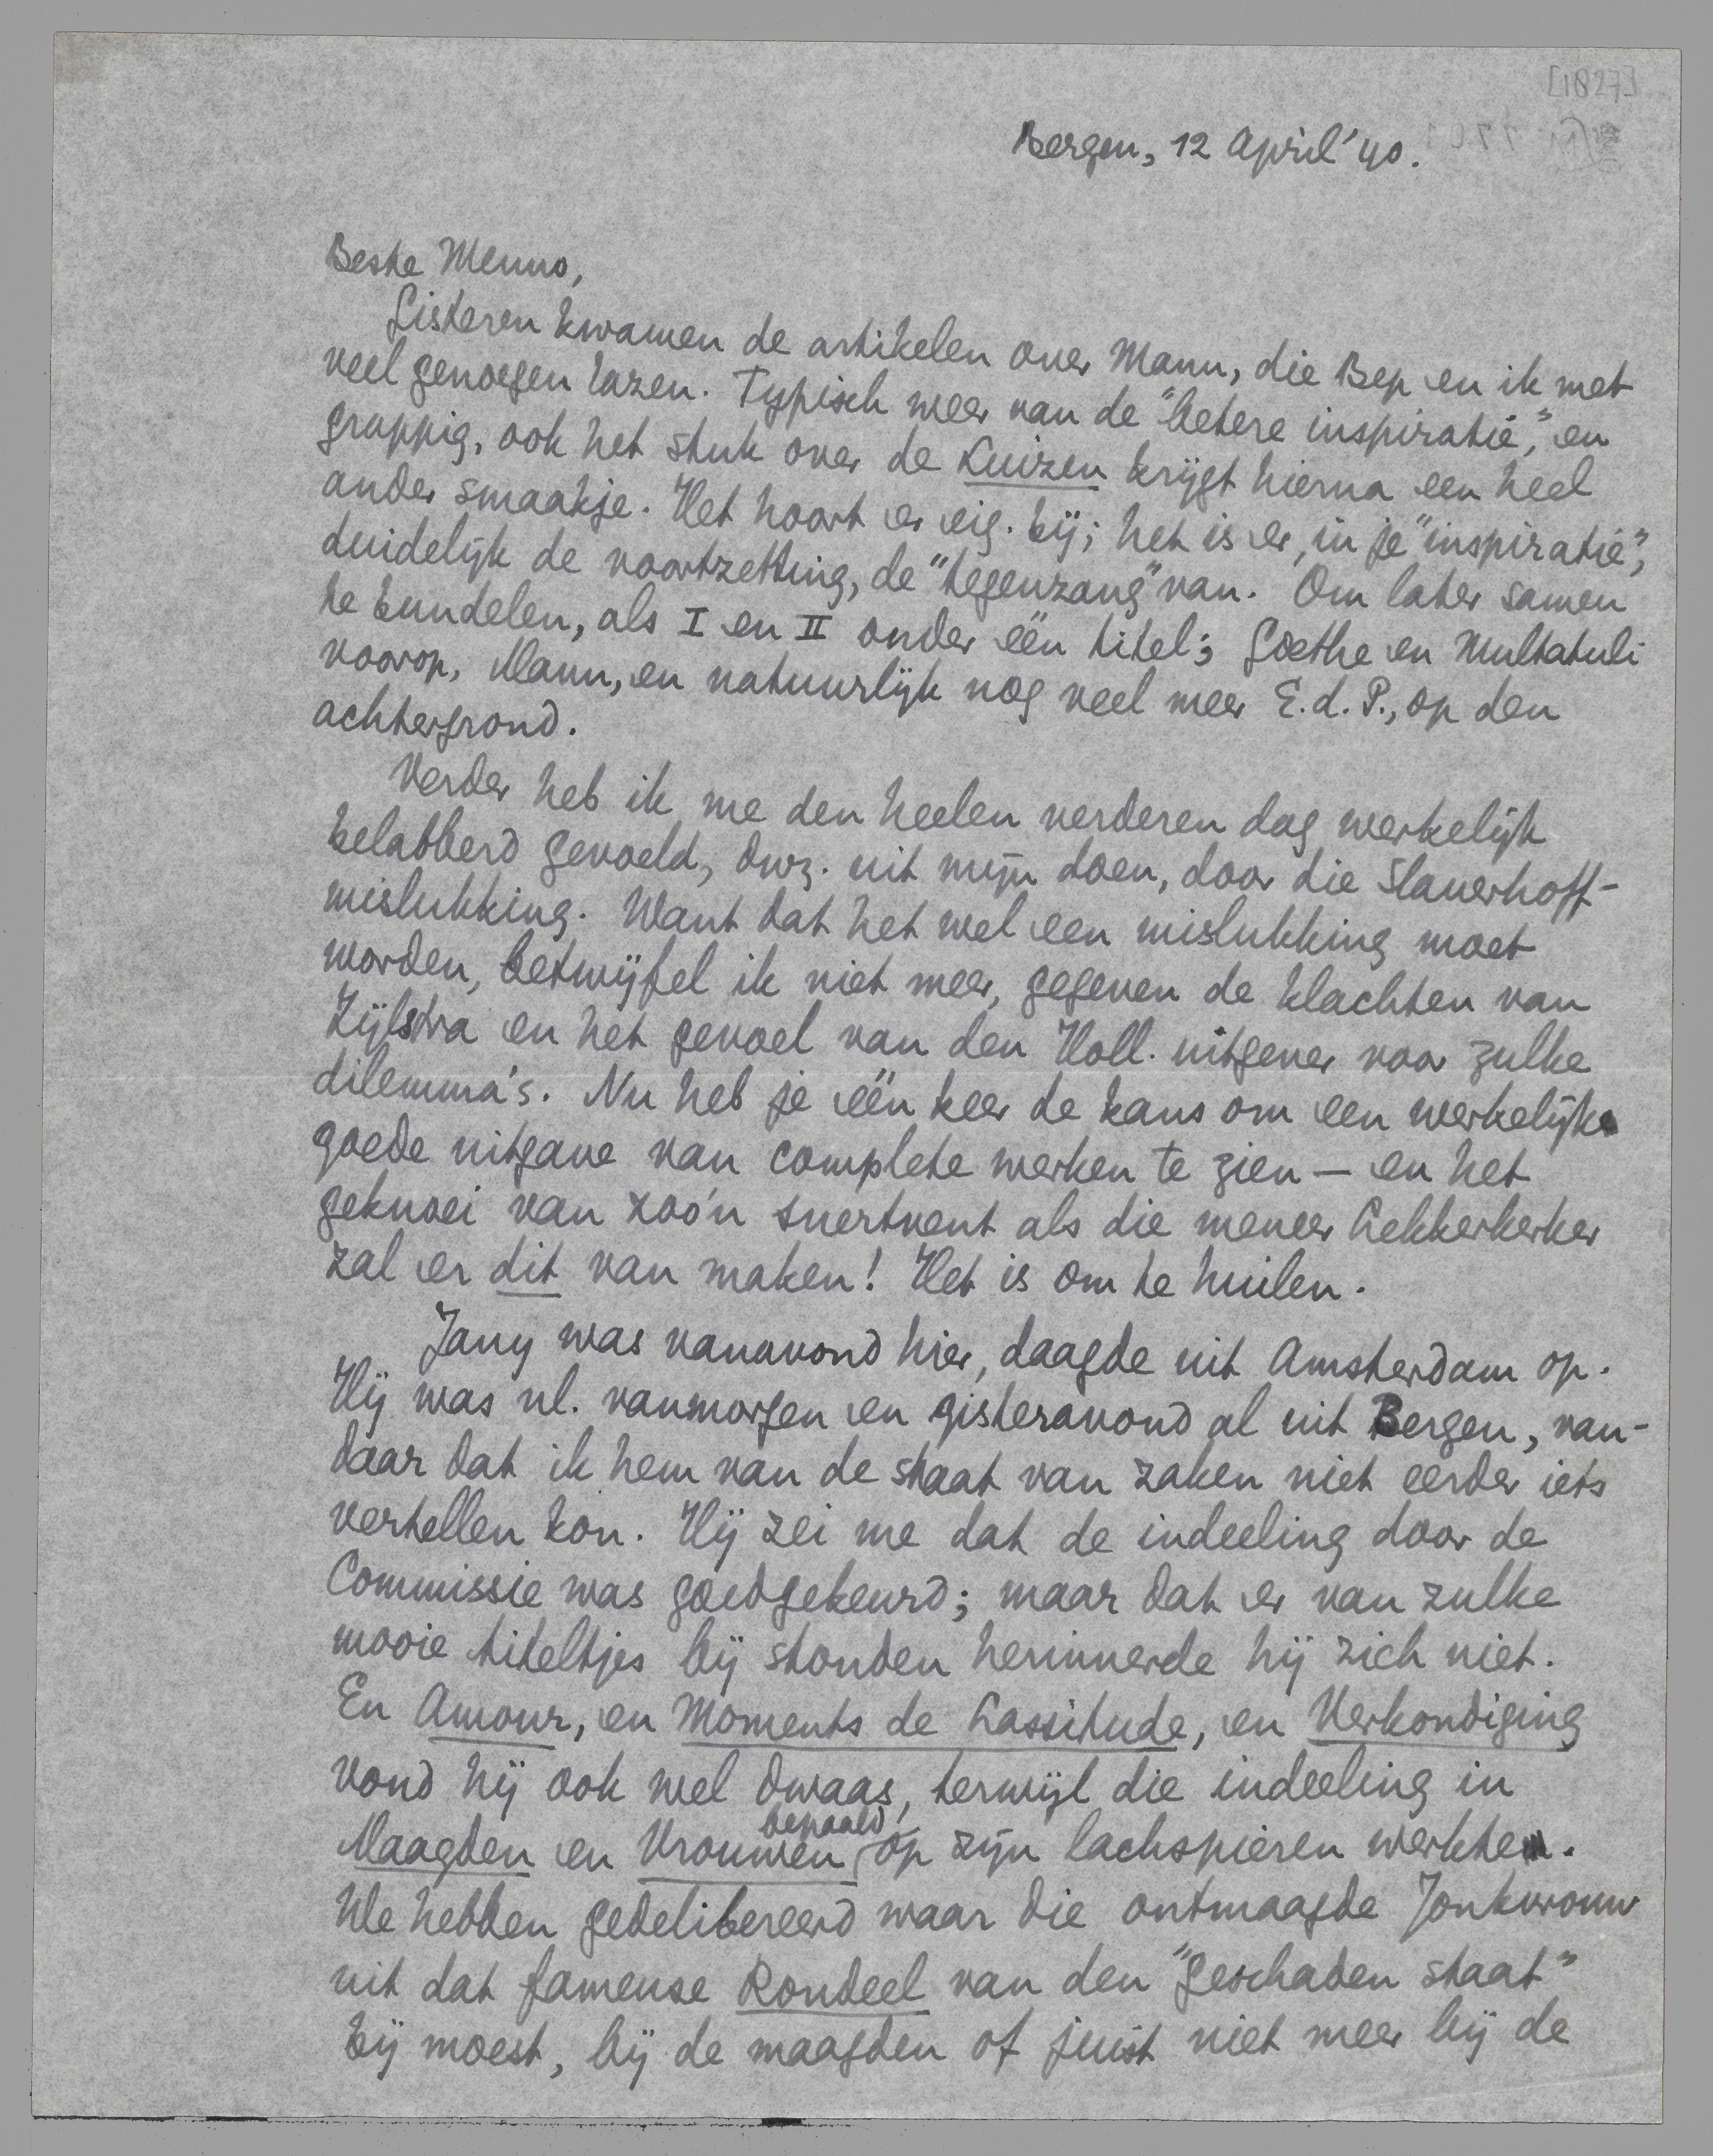 [1827]
Bergen, 12 April '40.
Beste Menno,
Gisteren kwamen de artikelen over Mann, die Bep en ik met
veel genoegen lazen. Typisch weer van de "betere inspiratie", en
grappig, ook het stuk over de Kuizen krijgt hierna een heel
ander smaakje. Het hoort er eig. bij; het is er, in je "inspiratie",
duidelijk de voortzetting, de "tegenzang" van. Om later samen
te bundelen, als I en II onder één titel; Goethe en Multatuli
voorop, Mann, en natuurlijk nog veel meer E.d.P., op den
achtergrond.
Verder heb ik me den heelen verderen dag werkelijk
belabberd gevoeld, dwz. uit mijn doen, door die Slauerhoff-
mislukking. Want dat het wel een mislukking moet
worden, betwijfel ik niet meer, gegeven de klachten van
Zijlstra en het gevoel van den Holl. uitgever voor zulke
dilemma's. Nu heb je één keer de kans om een werkelijk
goede uitgave van complete werken te zien — en het
geknoei van zoo'n snertvent als die meneer Lekkerkerker
zal er dit van maken! Het is om te huilen.
Jany was vanavond hier, daagde uit Amsterdam op.
Hij was nl. vanmorgen en gisteravond al uit Bergen, van-
daar dat ik hem van de staat van zaken niet eerder iets
vertellen kon. Hij zei me dat de indeeling door de
Commissie was goedgekeurd; maar dat er van zulke
mooie titeltjes bij stonden herinnerde hij zich niet.
En Amour, en Moments de Lassitude, en Verkondiging
vond hij ook wel dwaas, terwijl die indeeling in
Maagden en Vrouwen bepaald op zijn lachspieren werkte.
We hebben gedelibereerd waar die ontmaagde Jonkvrouw
uit dat fameuse Rondeel van den "geschaden staat"
bij moest, bij de maagden of juist niet meer bij de